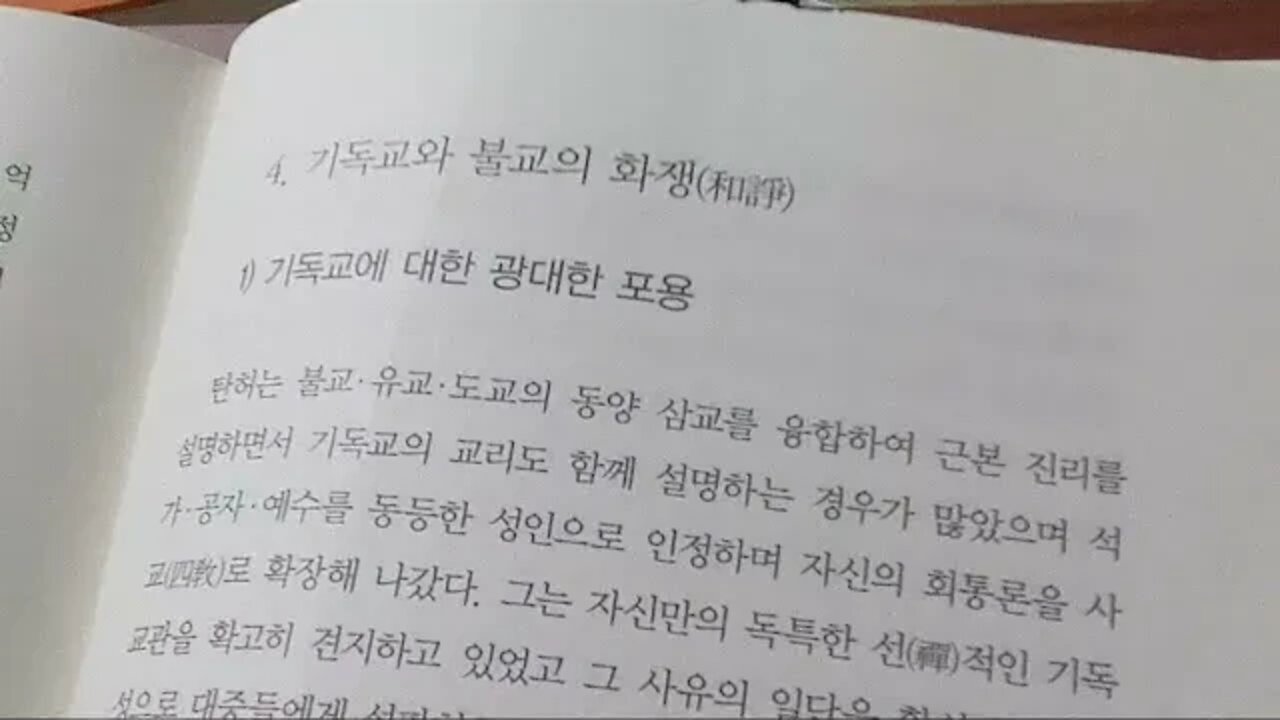 억
정
4. 기독교와 불교의 화쟁(和諍)
1) 기독교에 대한 광대한 포용
탄허는 불교·유교·도교의 동양 삼교를 융합하여 근본 진리를
설명하면서 기독교의 교리도 함께 설명하는 경우가 많았으며 석
가·공자·예수를 동등한 성인으로 인정하며 자신의 회통론을 사
교(四敎)로 확장해 나갔다. 그는 자신만의 독특한 선(禪)적인 기독
교관을 확고히 견지하고 있었고 그 사유의 일단을
성으로 대중들에게